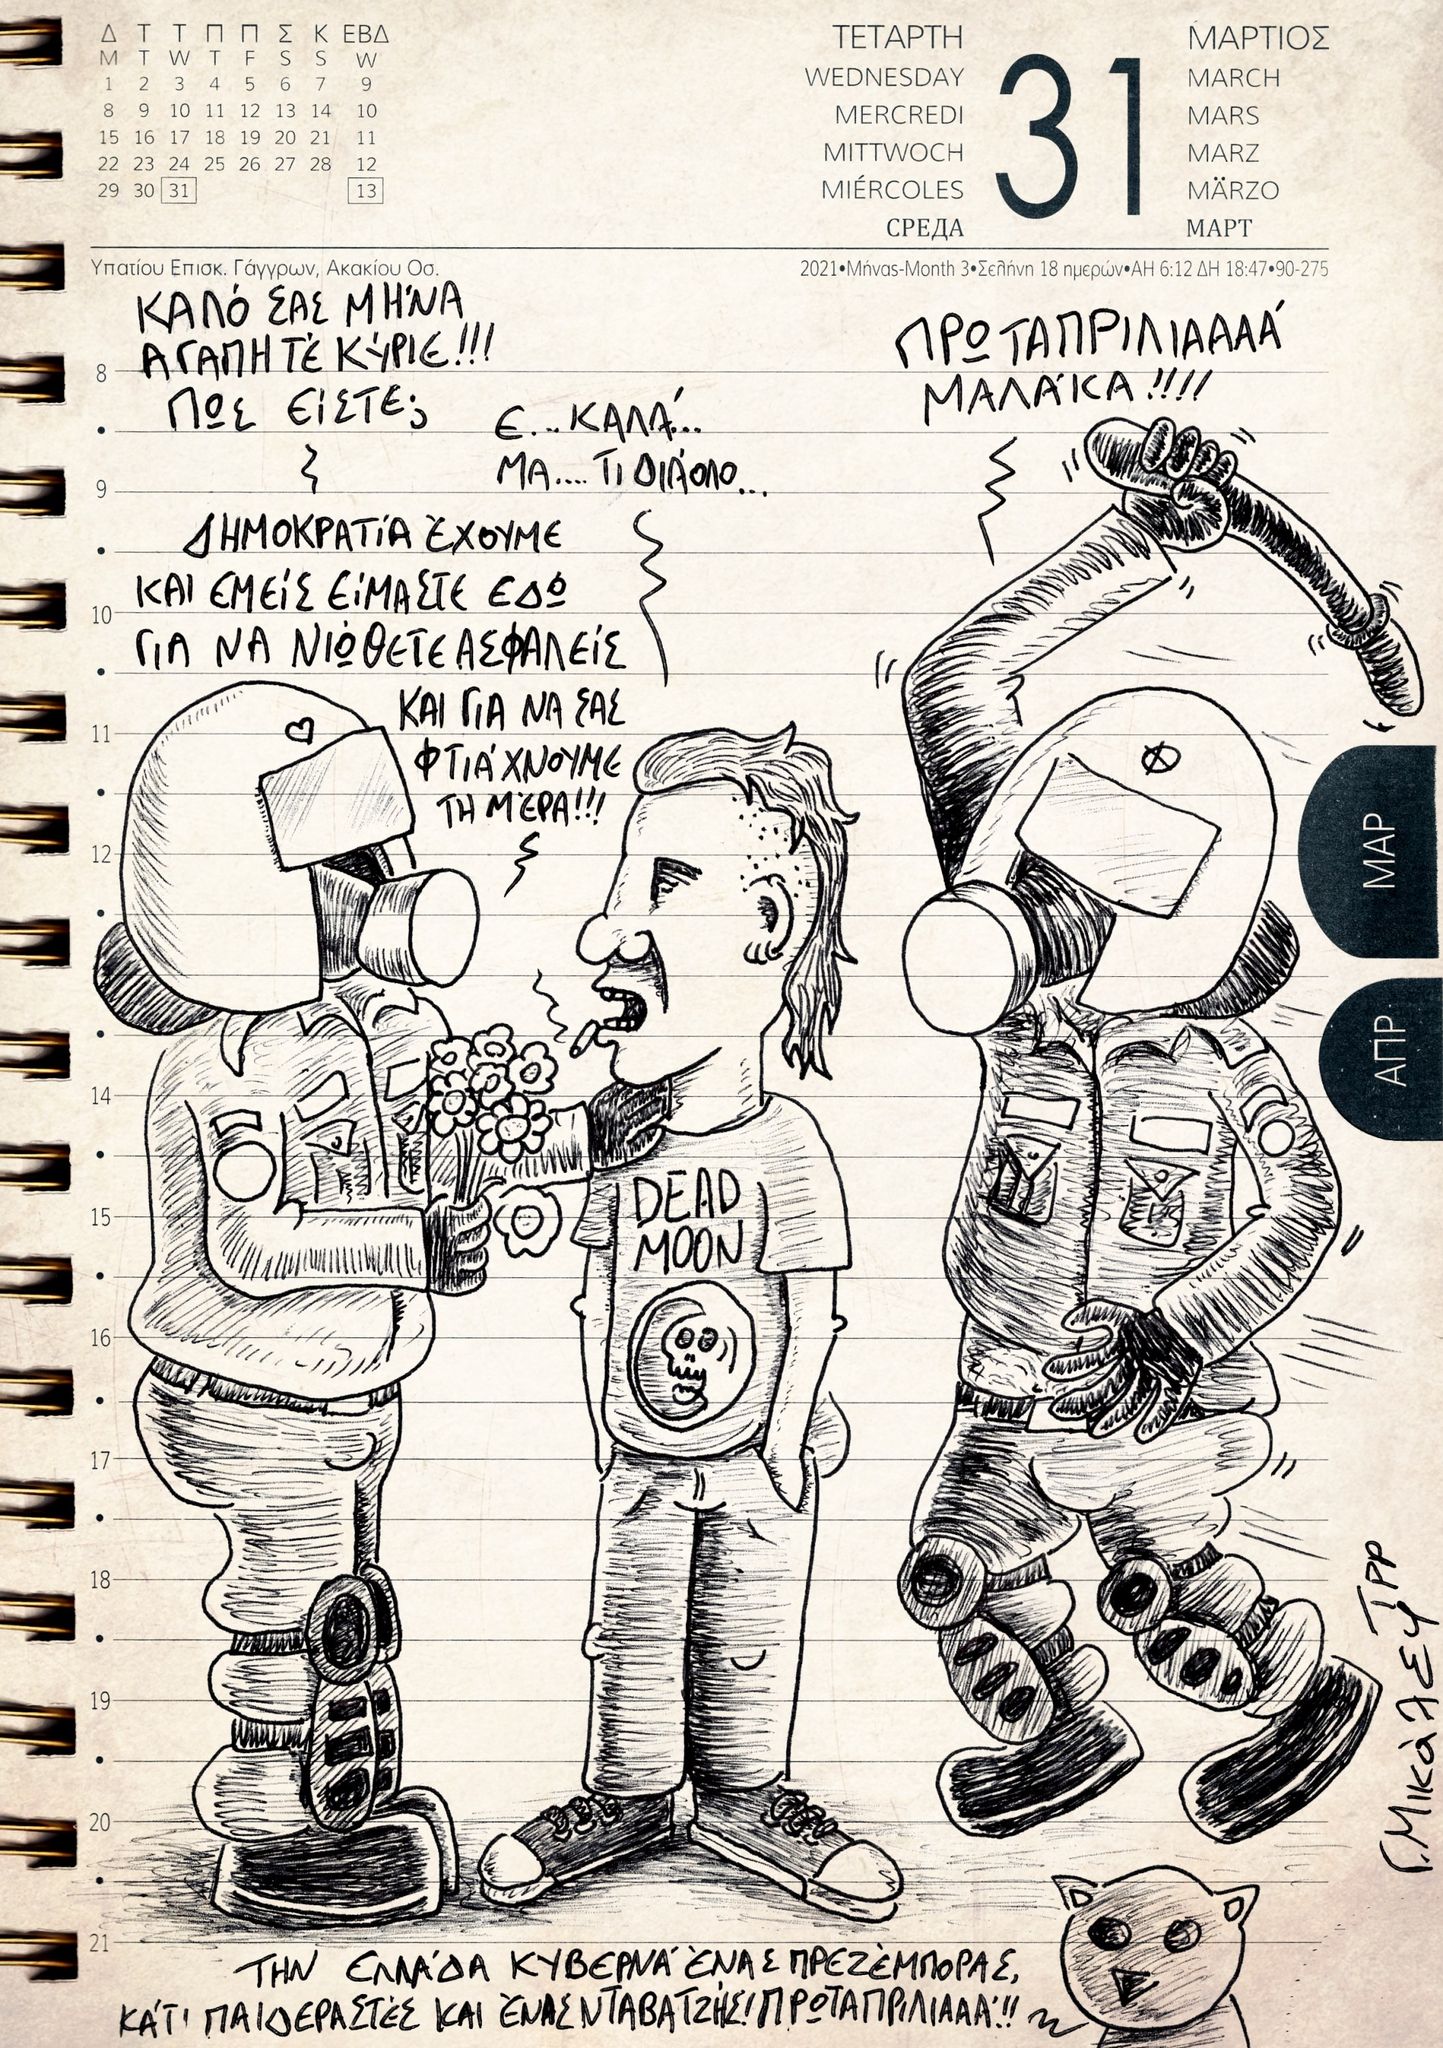 Δ Τ Τ Π Π Σ Κ ΕΒΔ
M T W T F S S W
1 2 3 4 5 6 7 9
8 9 10 11 12 13 14 10
15 16 17 18 19 20 21 11
22 23 24 25 26 27 28 12
29 30 31 13
ΤΕΤΑΡΤΗ
WEDNESDAY
MERCREDI
MITTWOCH
MIÉRCOLES
СРЕДА
31
ΜΑΡΤΙΟΣ
MARCH
MARS
MARZ
MÄRZO
МАРТ
Υπατίου Επισκ. Γάγγρων, Ακακίου Οσ.
2021•Μήνας-Month 3•Σελήνη 18 ημερών•ΑΗ 6:12 ΔΗ 18:47•90-275
ΚΑΛΌ ΣΑΣ ΜΉΝΑ
ΑΓΑΠΗΤΈ ΚΎΡΙΕ!!!
ΠΩΣ ΕΊΣΤΕ;
Ε... ΚΑΛΆ...
ΜΑ.... ΤΙ ΔΙΆΟΛΟ...
ΠΡΩΤΑΠΡΙΛΙΑΑΑΆ
ΜΑΛΆΚΑ!!!!
ΔΗΜΟΚΡΑΤΊΑ ΈΧΟΥΜΕ
ΚΑΙ ΕΜΕΊΣ ΕΊΜΑΣΤΕ ΕΔΏ
ΓΙΑ ΝΑ ΝΙΏΘΕΤΕ ΑΣΦΑΛΕΊΣ
ΚΑΙ ΓΙΑ ΝΑ ΣΑΣ
ΦΤΙΆΧΝΟΥΜΕ
ΤΗ ΜΈΡΑ!!!
8
9
10
11
12
14
15
16
17
18
19
20
21
ΜΑΡ
ΑΠΡ
DEAD
MOON
Γ. Μικάλεφ Τρρ
ΤΗΝ ΕΛΛΆΔΑ ΚΥΒΕΡΝΆ ΈΝΑΣ ΠΡΕΖΈΜΠΟΡΑΣ,
ΚΆΤΙ ΠΑΙΔΕΡΑΣΤΈΣ ΚΑΙ ΈΝΑΣ ΝΤΑΒΑΤΖΉΣ! ΠΡΩΤΑΠΡΙΛΙΑΑΆ!!